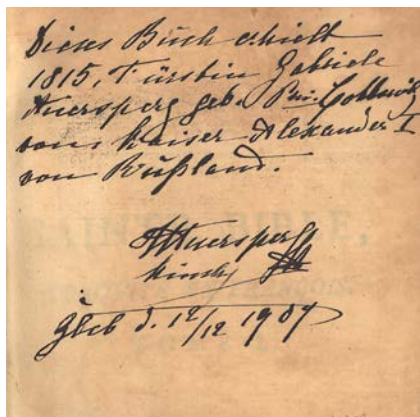 Dieses Buch erhielt
1815, Fürstin Gabriele
Auersperg geb. Lobkowitz
vom Kaiser Alexander I
von Rußland.
Auersperg
Kinsky
d. 12/12 1907